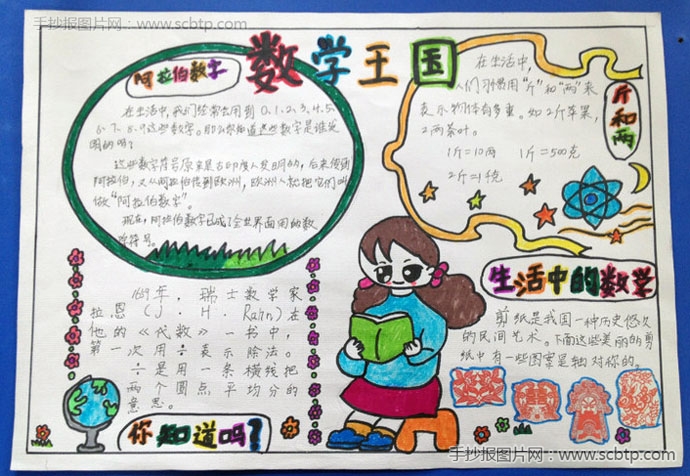 手抄报图片网 - www.scbtp.com
数学王国
阿拉伯数字
在生活中,我们经常会用到0、1、2、3、4、5、
6、7、8、9这些数字。那么你知道这些数字是谁发
明的吗?
这些数字符号原来是古印度人发明的,后来传到
阿拉伯,又从阿拉伯传到欧洲,欧洲人就把它们叫
做“阿拉伯数字”。
现在,阿拉伯数字已成了全世界通用的数
字符号。
在生活中,
人们习惯用“斤”和“两”来
表示物体有多重。如2斤苹果,
2两茶叶。
1斤=10两 1斤=500克
2斤=1千克
斤和两
1659年,瑞士数学家
拉恩(J·H·Rahn)在
他的《代数》一书中,
第一次用÷表示除法。
÷是用一条横线把
两个圆点平均分的
意思。
你知道吗?
生活中的数学
剪纸是我国一种历史悠久
的民间艺术。下面这些美丽的剪
纸中有一些图案是轴对称的。
手抄报图片网:www.scbtp.com